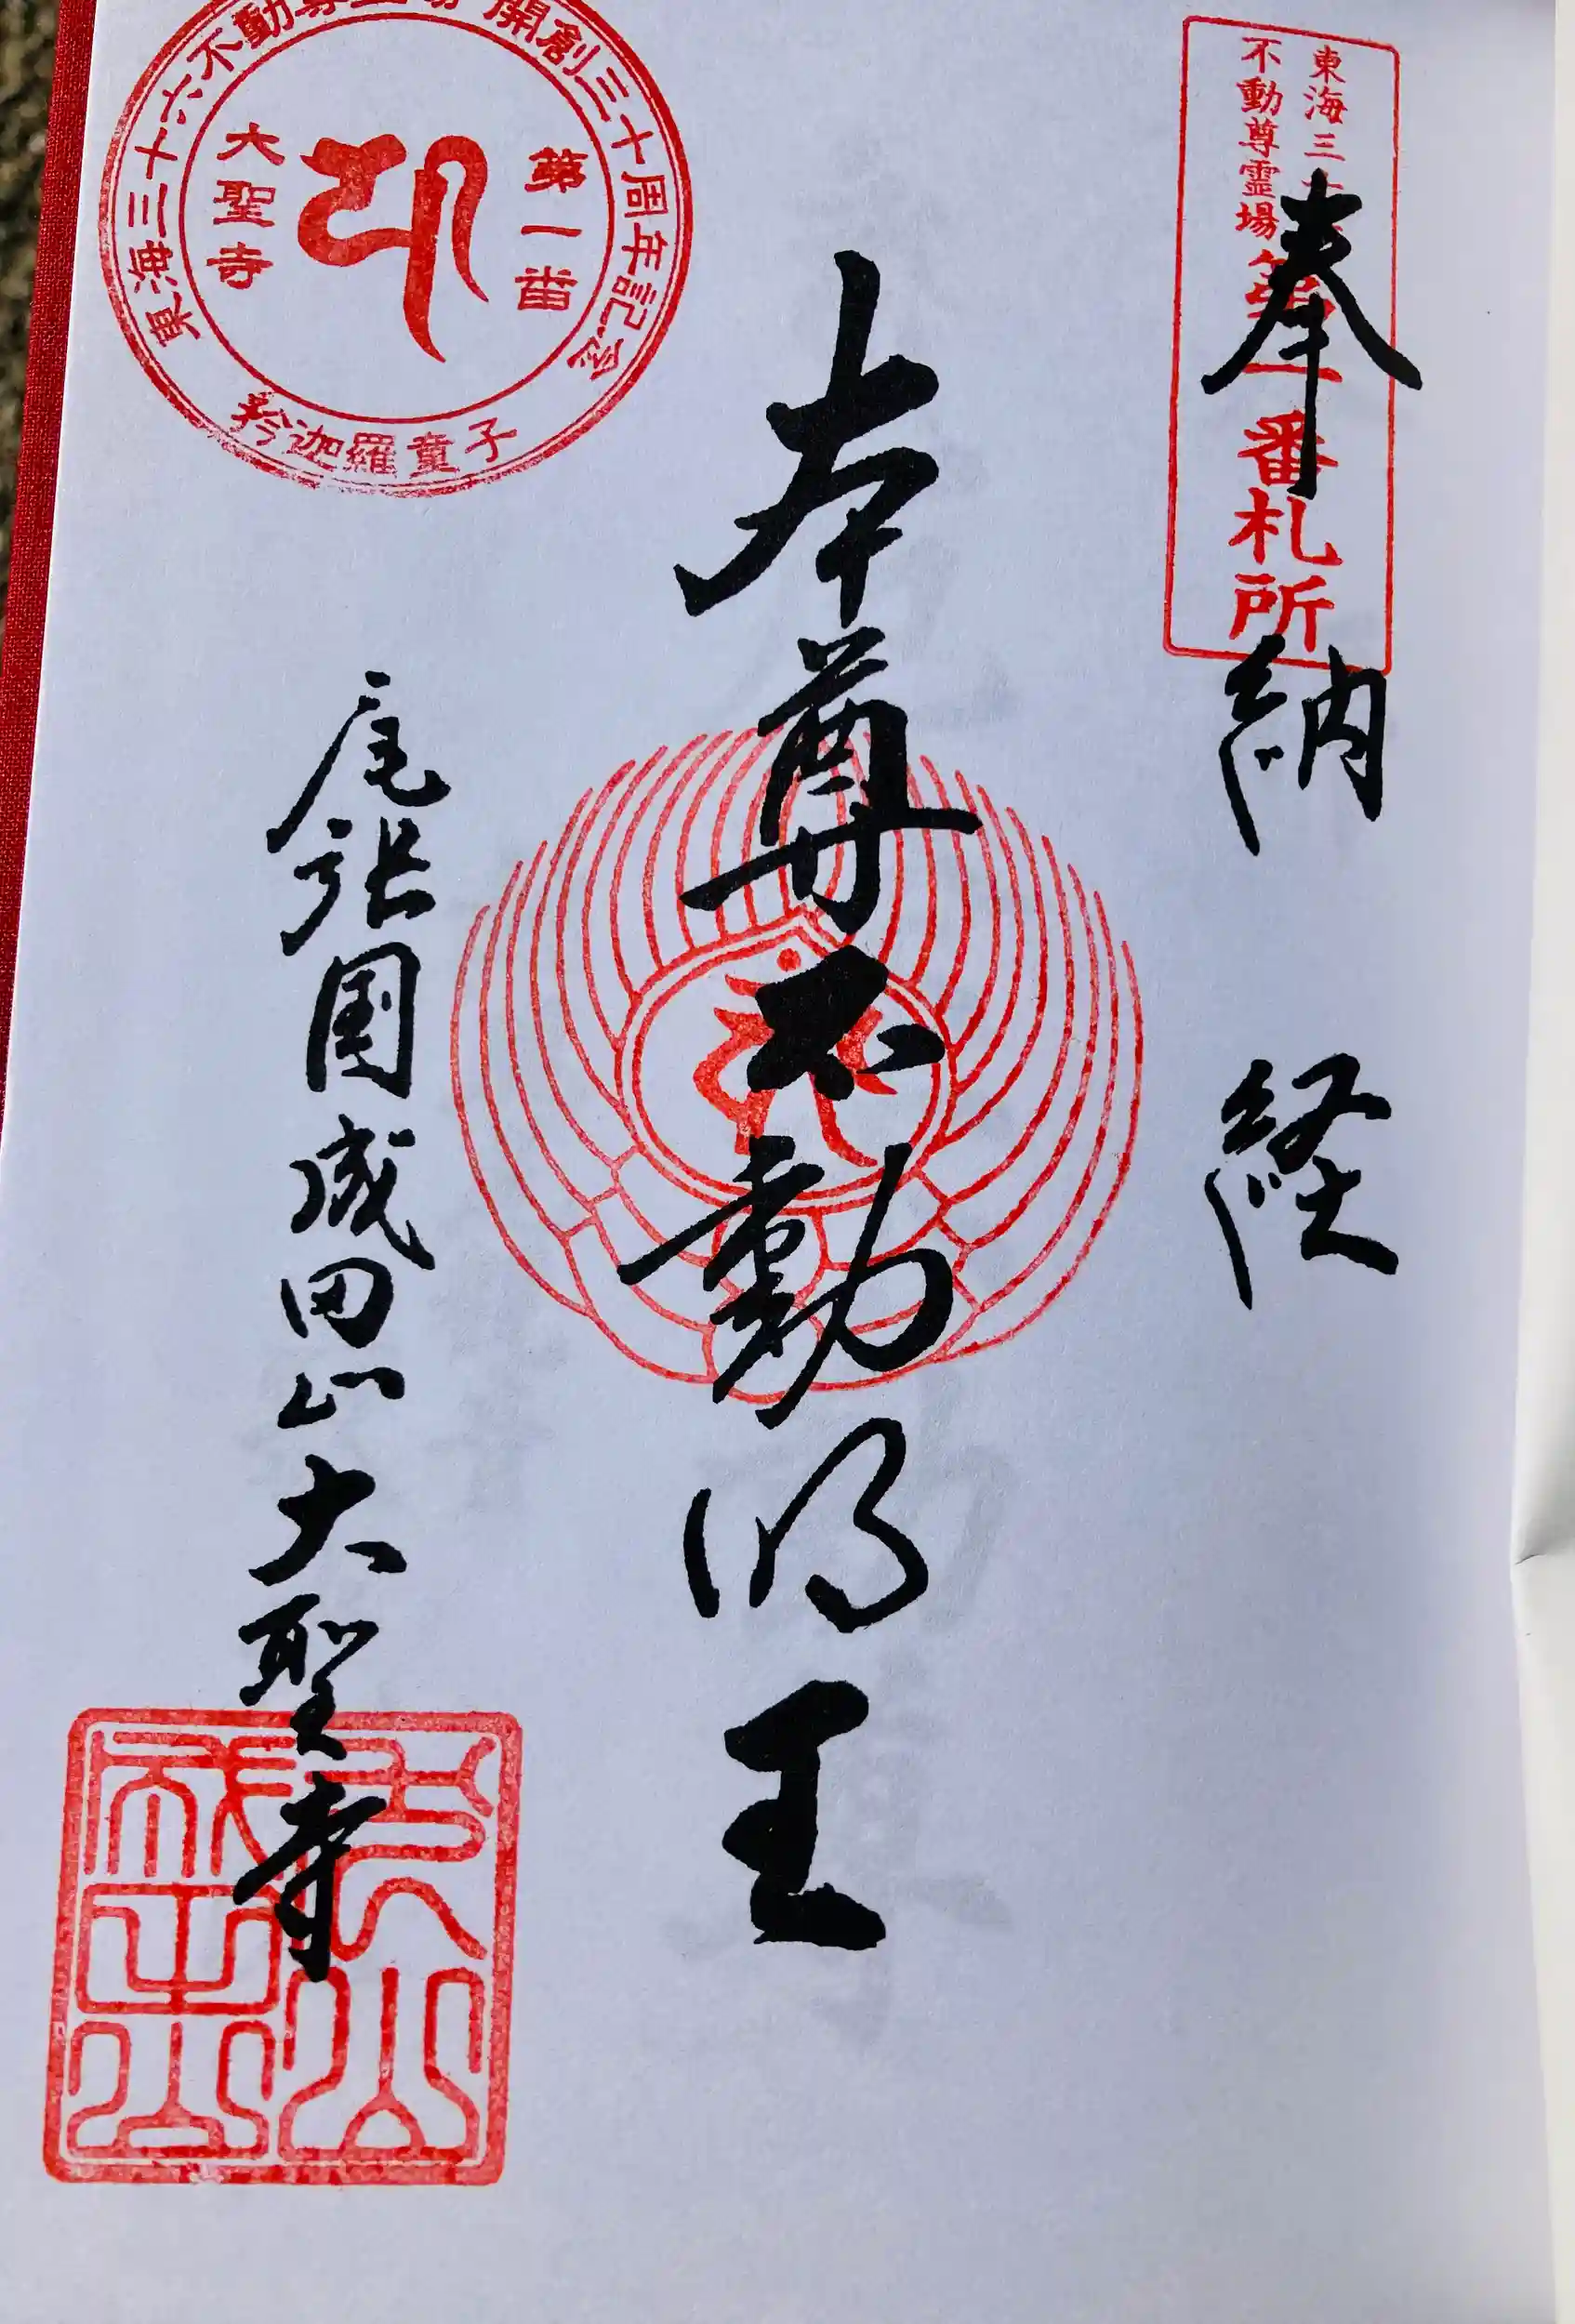 奉納経
東海三
不動尊霊場
第一番札所
本尊不動明王
尾張国成田山大聖寺
東海三十六不動尊霊場 開創三十周年記念
第一番
大聖寺
矜迦羅童子